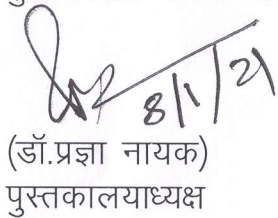 8/1/21
(डॉ.प्रज्ञा नायक)
पुस्तकालयाध्यक्ष